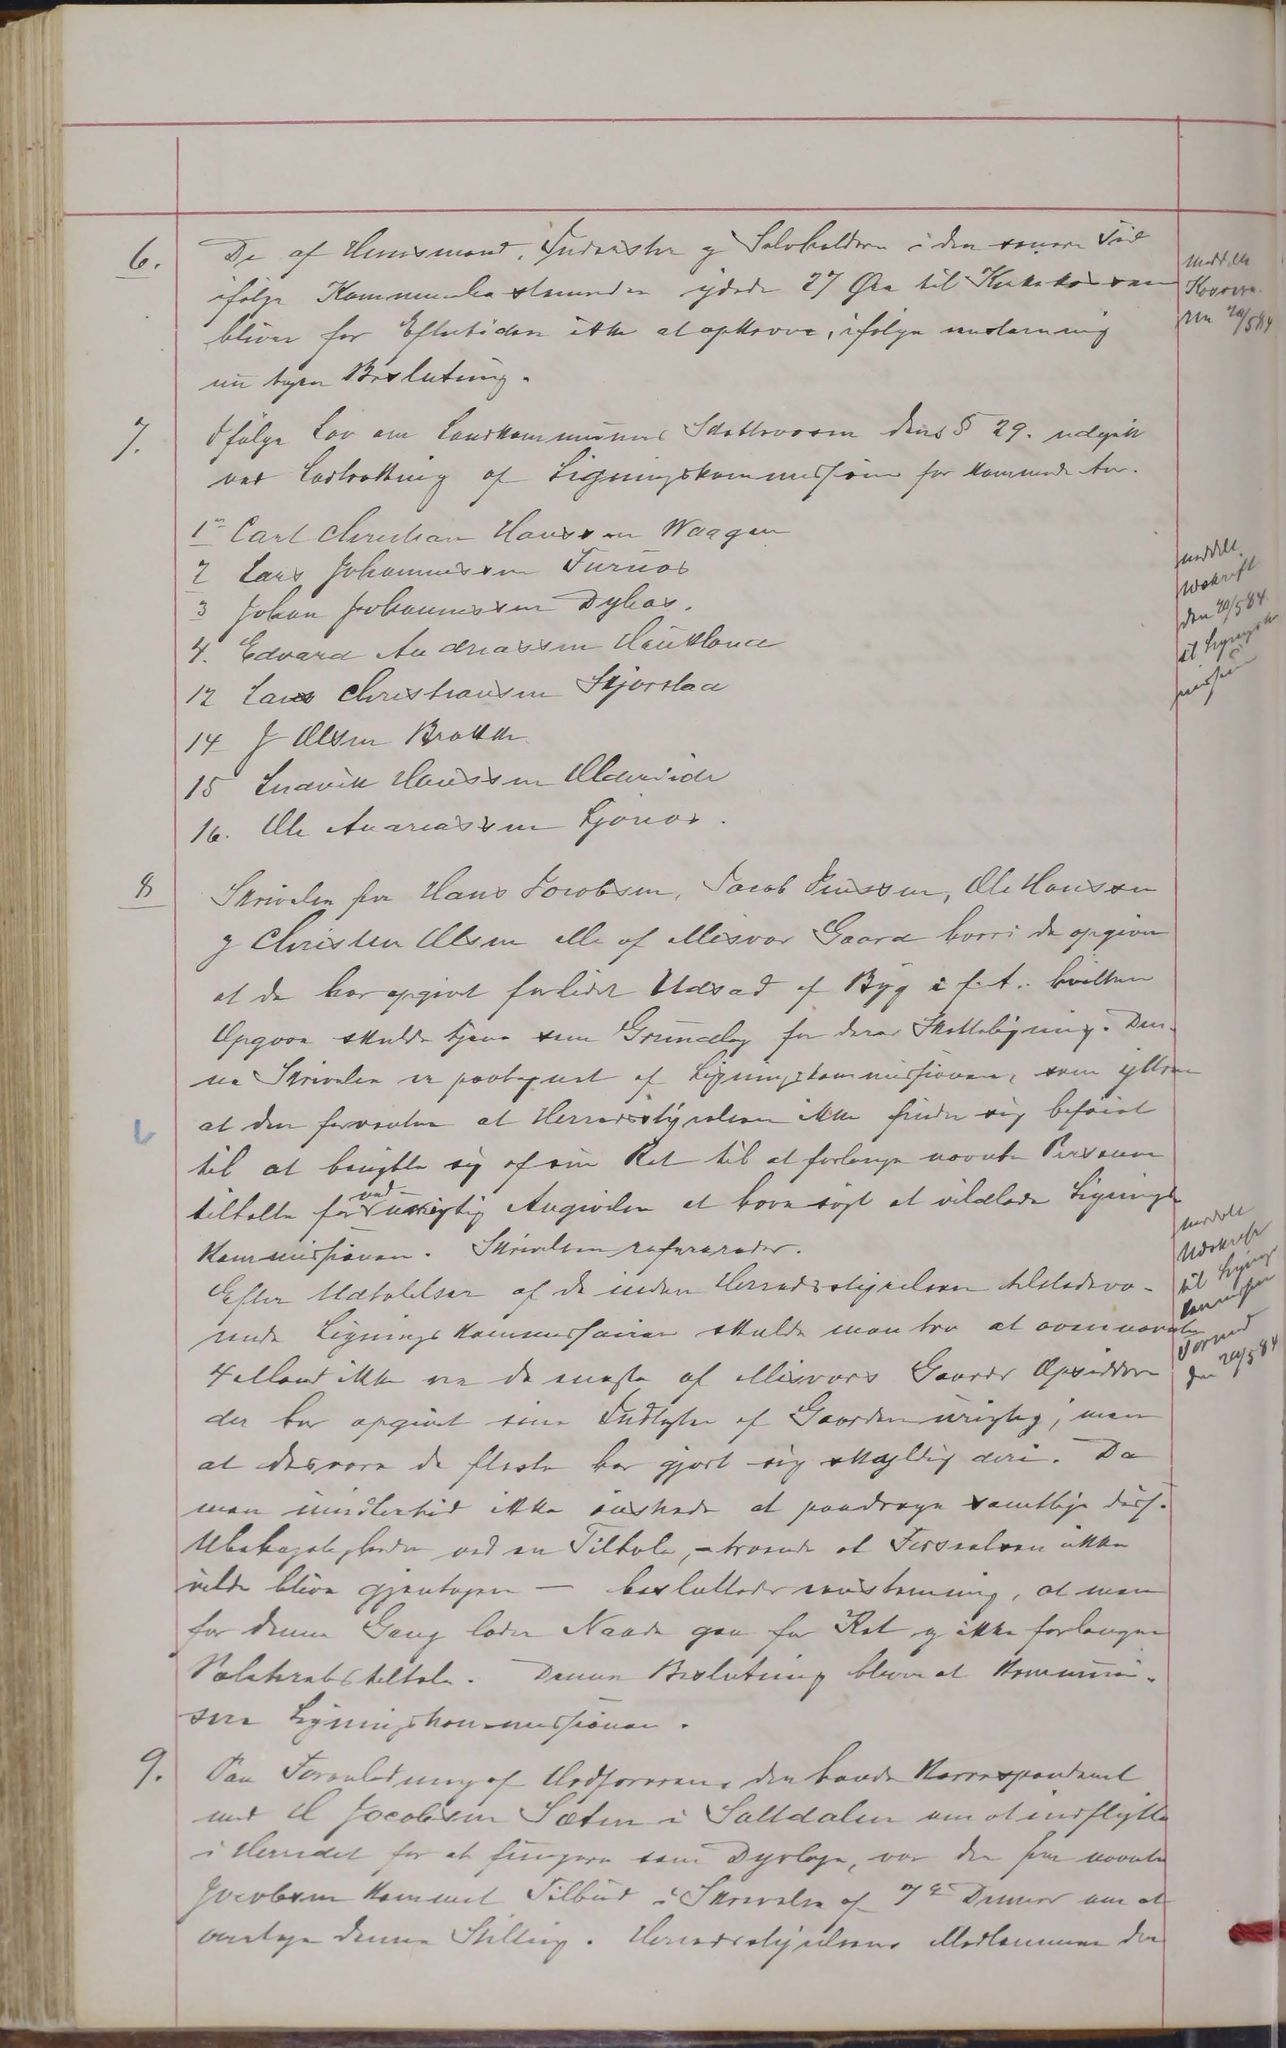 6. De af Huusmænd, Inderster og Selvholdere i den senere Tid
ifølge Kommunebestemmelse ydede 27 Øre til Kirkekassen
bliver for Eftertiden ikke at opkræve, ifølge enstemmig
nu tagen Beslutning.
meddelt
den 20/5 84
7. Ifølge Lov om Landkommunens Skattevæsen dens § 29. udgik
ved Lodtrækning af Ligningskommissionen for kommende Aar.
1 Carl Christian Hanssen Waagen
2 Lars Johannessen Furnæs
3 Johan Johannessen Dybas.
4. Edvard Andreassen Haukland
12 Lars Christiansen Skjørstad
14 J Olsen Brække
15 Ludvik Hanssen Oldereide
16. Ole Andreassen Ljønes.
meddelt
Udskrift
den 20/5 84
til Lignings
missionen
8 Skrivelse fra Hans Jacobsen, Jacob Jenssen, Ole Hanssen
og Christen Olsen alle af Misvær Gaard hvori de opgiver
at de har opgivet forlidet Udsæd af Byg i f. A. hvilken
Opgave skulde tjene som Grundlag for deres Skatteligning. Den-
ne Skrivelse er paategnet af Ligningskommissionen, som ytrer
at den forventer at Herredsstyrelsen ikke finder sig beføiet
til at benytte sig af sin Ret til at forlange nævnte Personer
tiltalte for ved urigtig Angivelse at have søgt at vildlede Lignings
kommissionen. Skrivelsen refereredes.
Efter Udtalelser af de inden Herredsstyrelsen tilstedevæ-
rende Ligningskommissairer skulde man tro at ovennævnte
4 Mænd ikke er de eneste af Misvær Gaards Opsiddere
der har opgivet sine Indtægter af Gaarden urigtig, men
at desværre de fleste har gjort sig skyldig deri. Da
man imidlertid ikke ønskede at paadrage samtlige disse
Ubehageligheder ved en Tiltale, – troende at Forseelsen ikke
vilde blive gjentagen — besluttedes enstemmig, at man
for denne Gang lader Naade gaa for Ret og ikke forlanger
Politiretstiltale. Denne Beslutning bliver at kommuni-
sere Ligningskommissionen.
meddelt
Udskrift
til Lignings
kommissionen
Formand
den 20/5 84
9. Paa Foranledning af Ordførerens den havde Korrespondence
med H Jacobsen Sæten i Saltdalen om at indflytte
i Herredet for at fungere som Dyrlæge, var der fra nævnte
Jacobsen kommet Tilbud i Skrivelse af 7de Dennes om at
overtage denne Stilling. Herredsstyrelsens Medlemmer der